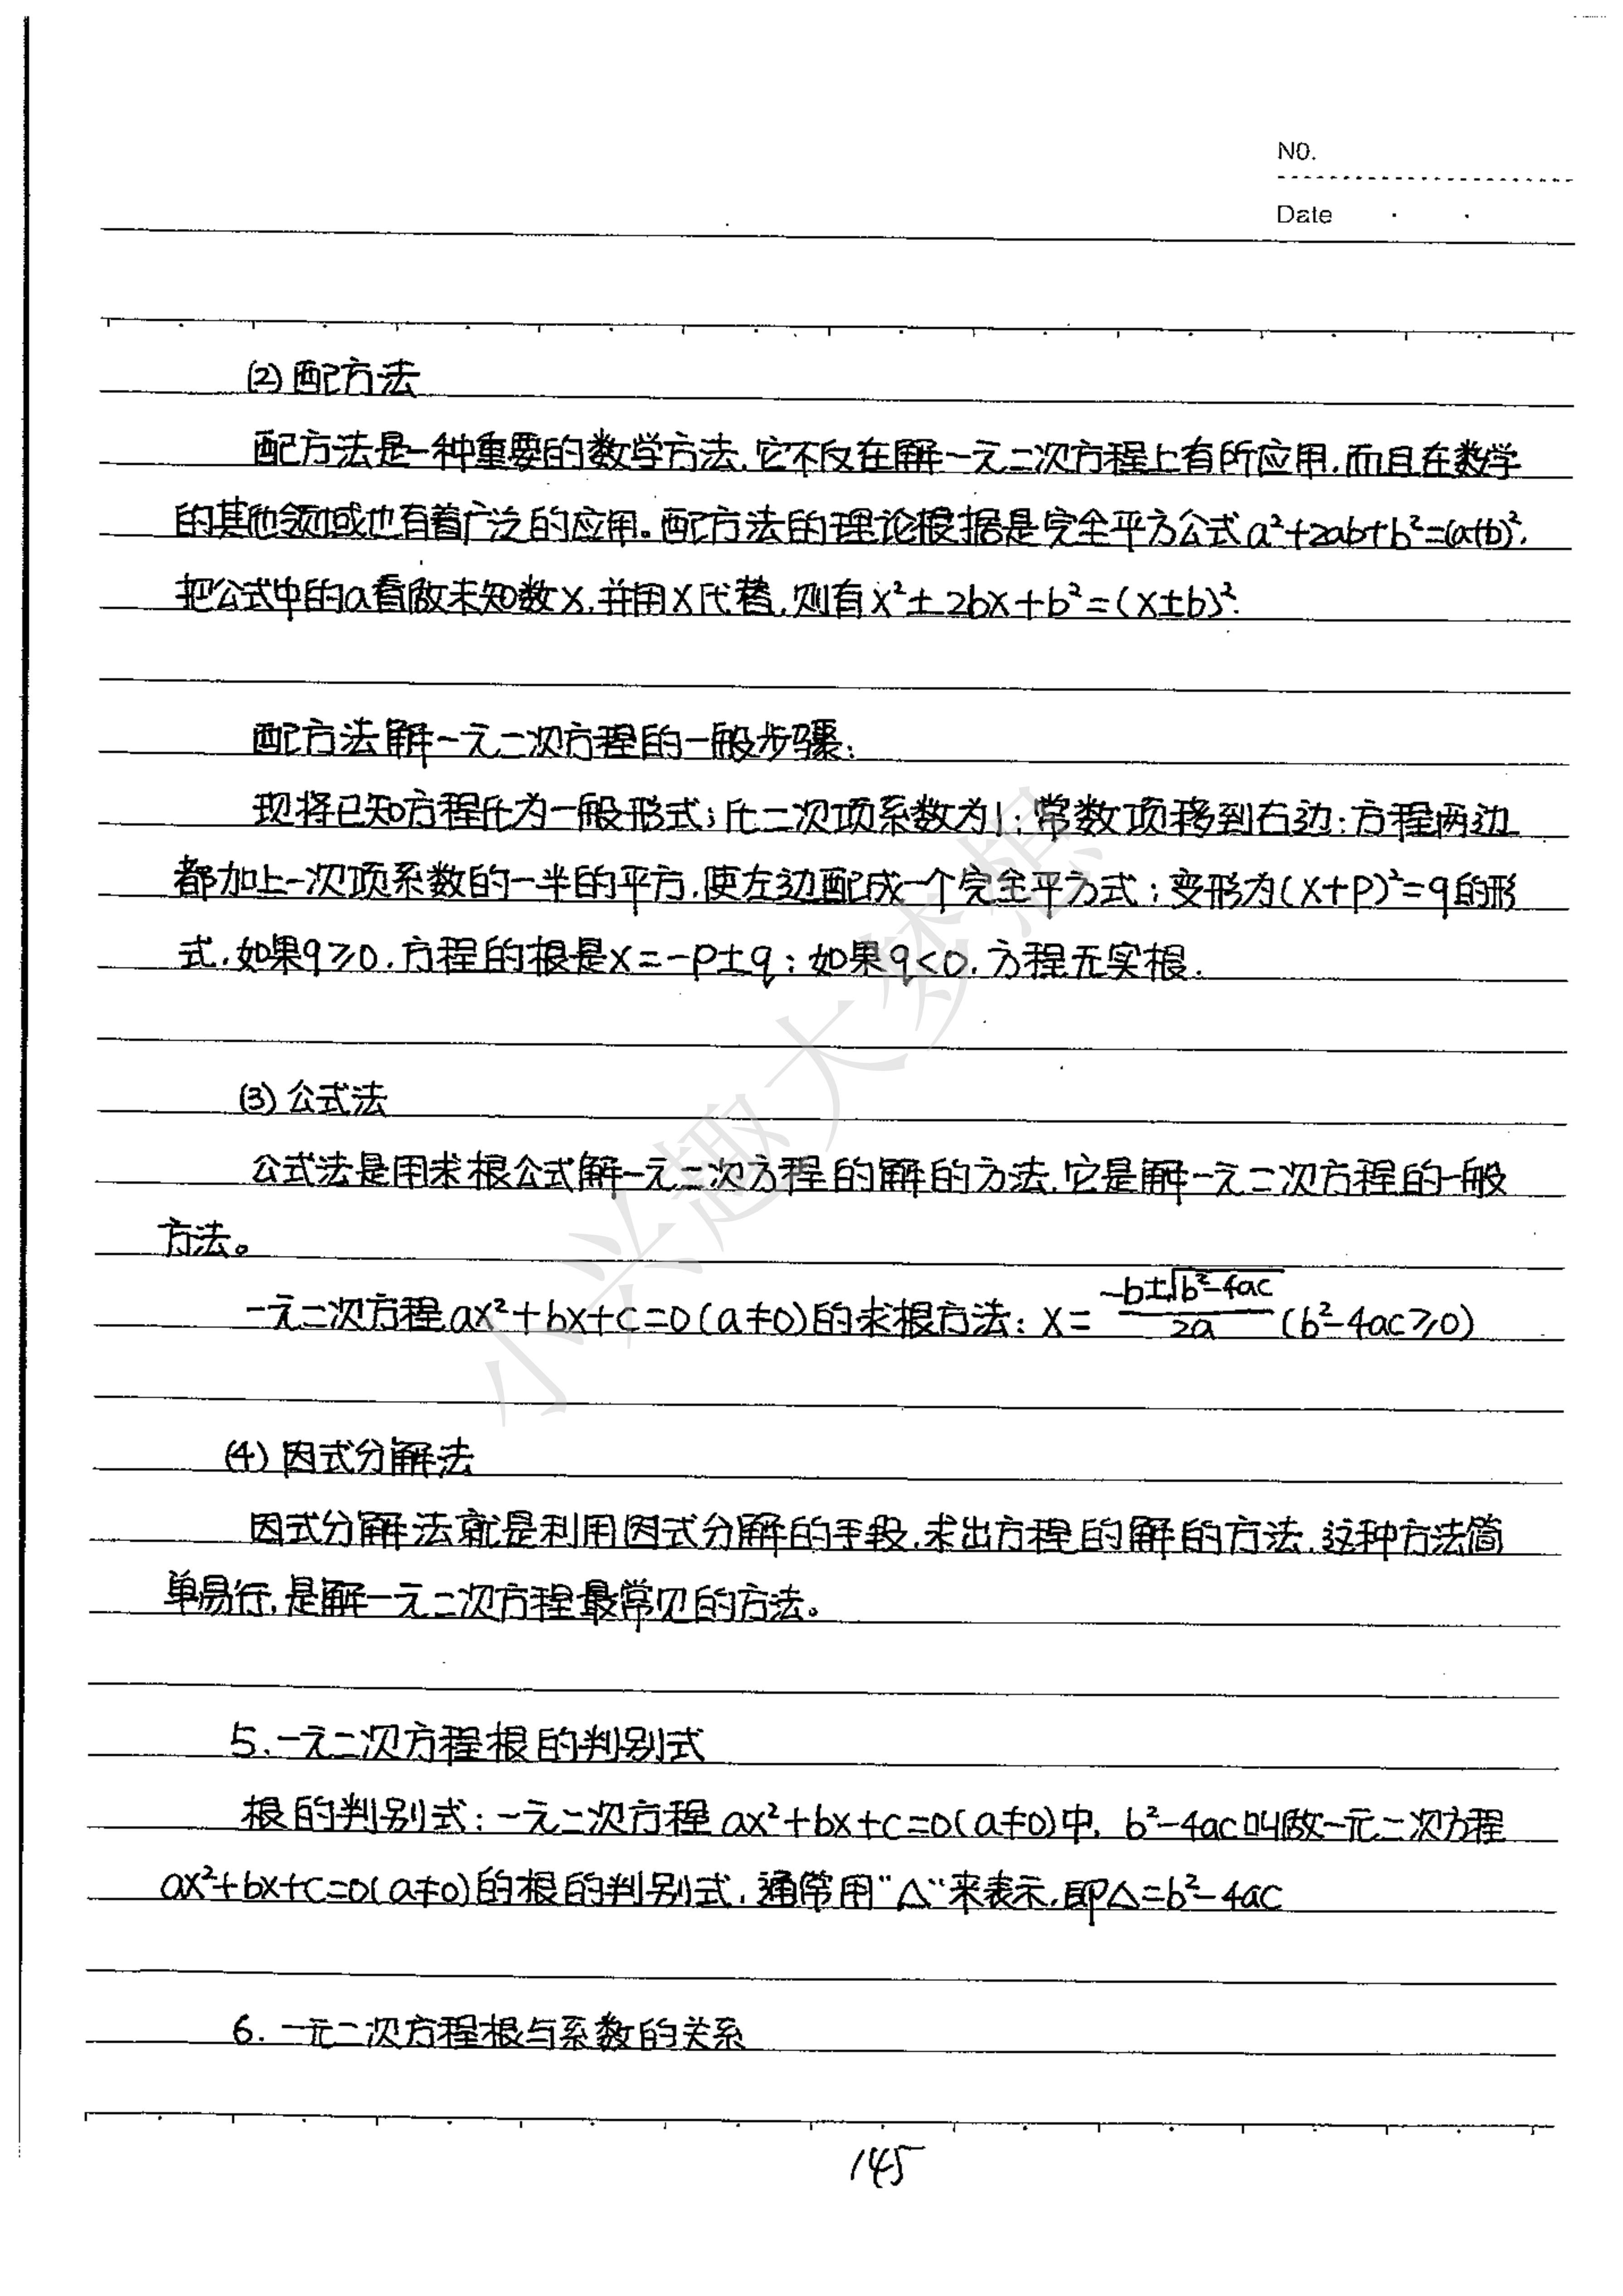 NO.
Date
(2) 配方法
配方法是一种重要的数学方法,它不仅在解一元二次方程上有所应用,而且在数学
的其他领域也有着广泛的应用。配方法的理论根据是完全平方公式a²+2ab+b²=(a+b)²,
把公式中的a看做未知数x,并用x代替,则有x²±2bx+b²=(x±b)².
配方法解一元二次方程的一般步骤:
现将已知方程化为一般形式;化二次项系数为1;常数项移到右边;方程两边
都加上一次项系数的一半的平方,使左边配成一个完全平方式;变形为(x+p)²=q的形
式,如果q≥0,方程的根是x=-p±q;如果q<0,方程无实根.
(3) 公式法
公式法是用求根公式解一元二次方程的解的方法,它是解一元二次方程的一般
方法。
一元二次方程ax²+bx+c=0(a≠0)的求根方法:x=\frac{-b±\sqrt{b²-4ac}}{2a}(b²-4ac≥0)
(4) 因式分解法
因式分解法就是利用因式分解的手段,求出方程的解的方法,这种方法简
单易行,是解一元二次方程最常见的方法。
5.一元二次方程根的判别式
根的判别式:一元二次方程ax²+bx+c=0(a≠0)中,b²-4ac叫做一元二次方程
ax²+bx+c=0(a≠0)的根的判别式,通常用"△"来表示,即△=b²-4ac
6.一元二次方程根与系数的关系
145
小兴趣大梦想